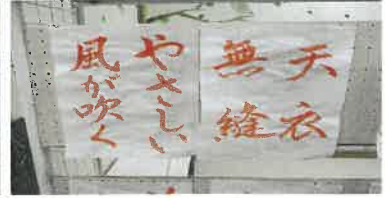 天衣
無縫
やさしい
風が吹く